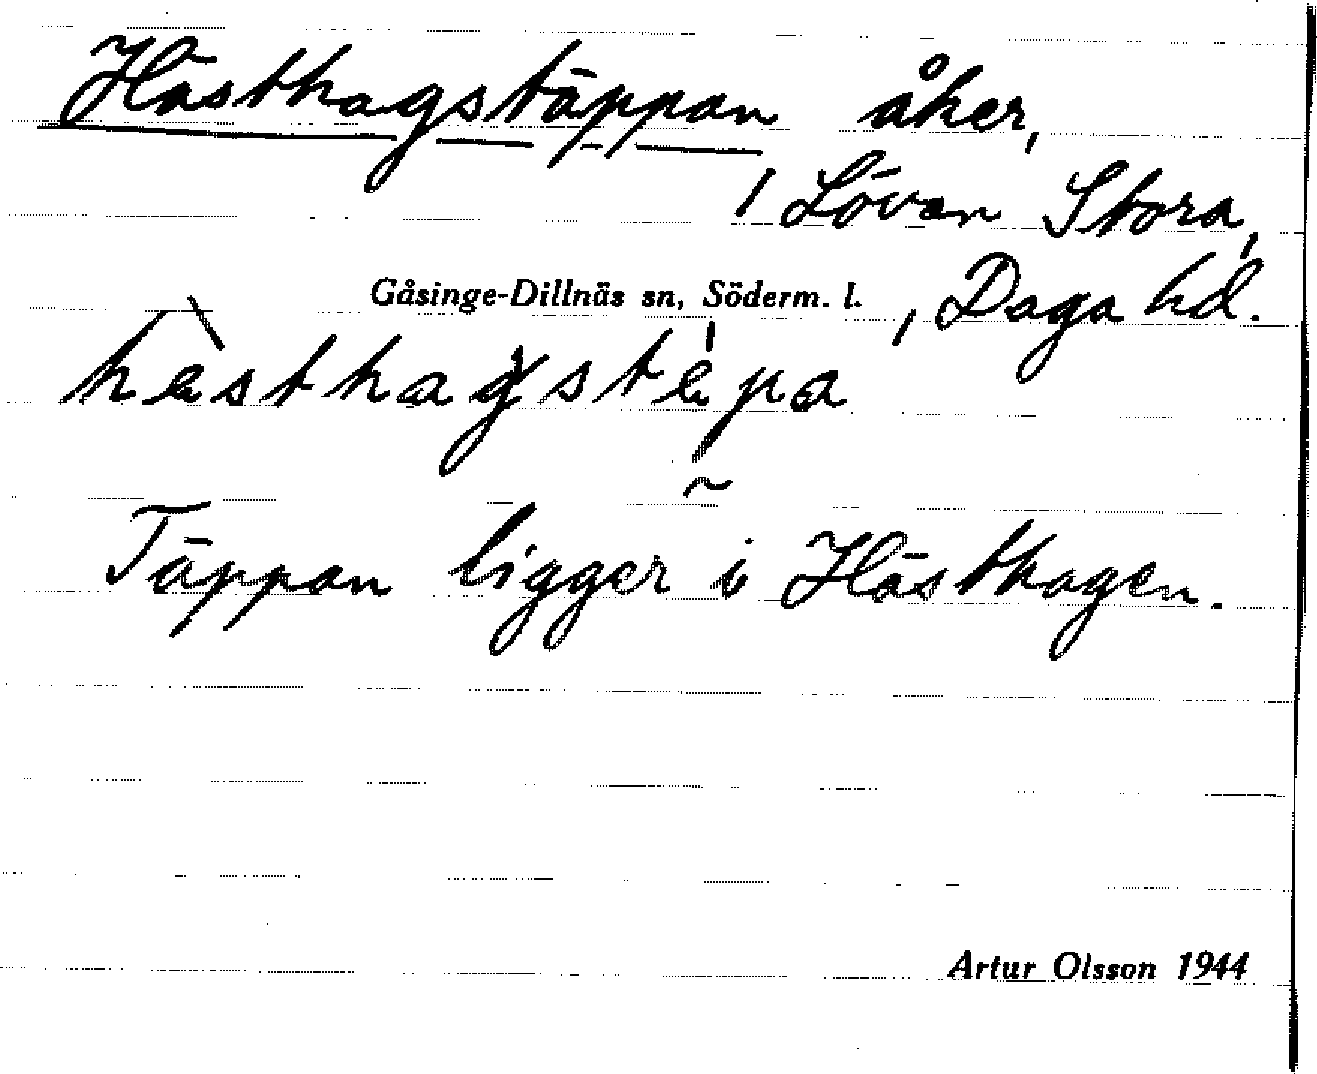 Hästhagstäppan åker,
1 Lövan Stora,
Gåsinge-Dillnäs sn, Söderm. l., Daga hd.
hèsthagstépa
Täppan ligger i Hästhagen.
Artur Olsson 1944